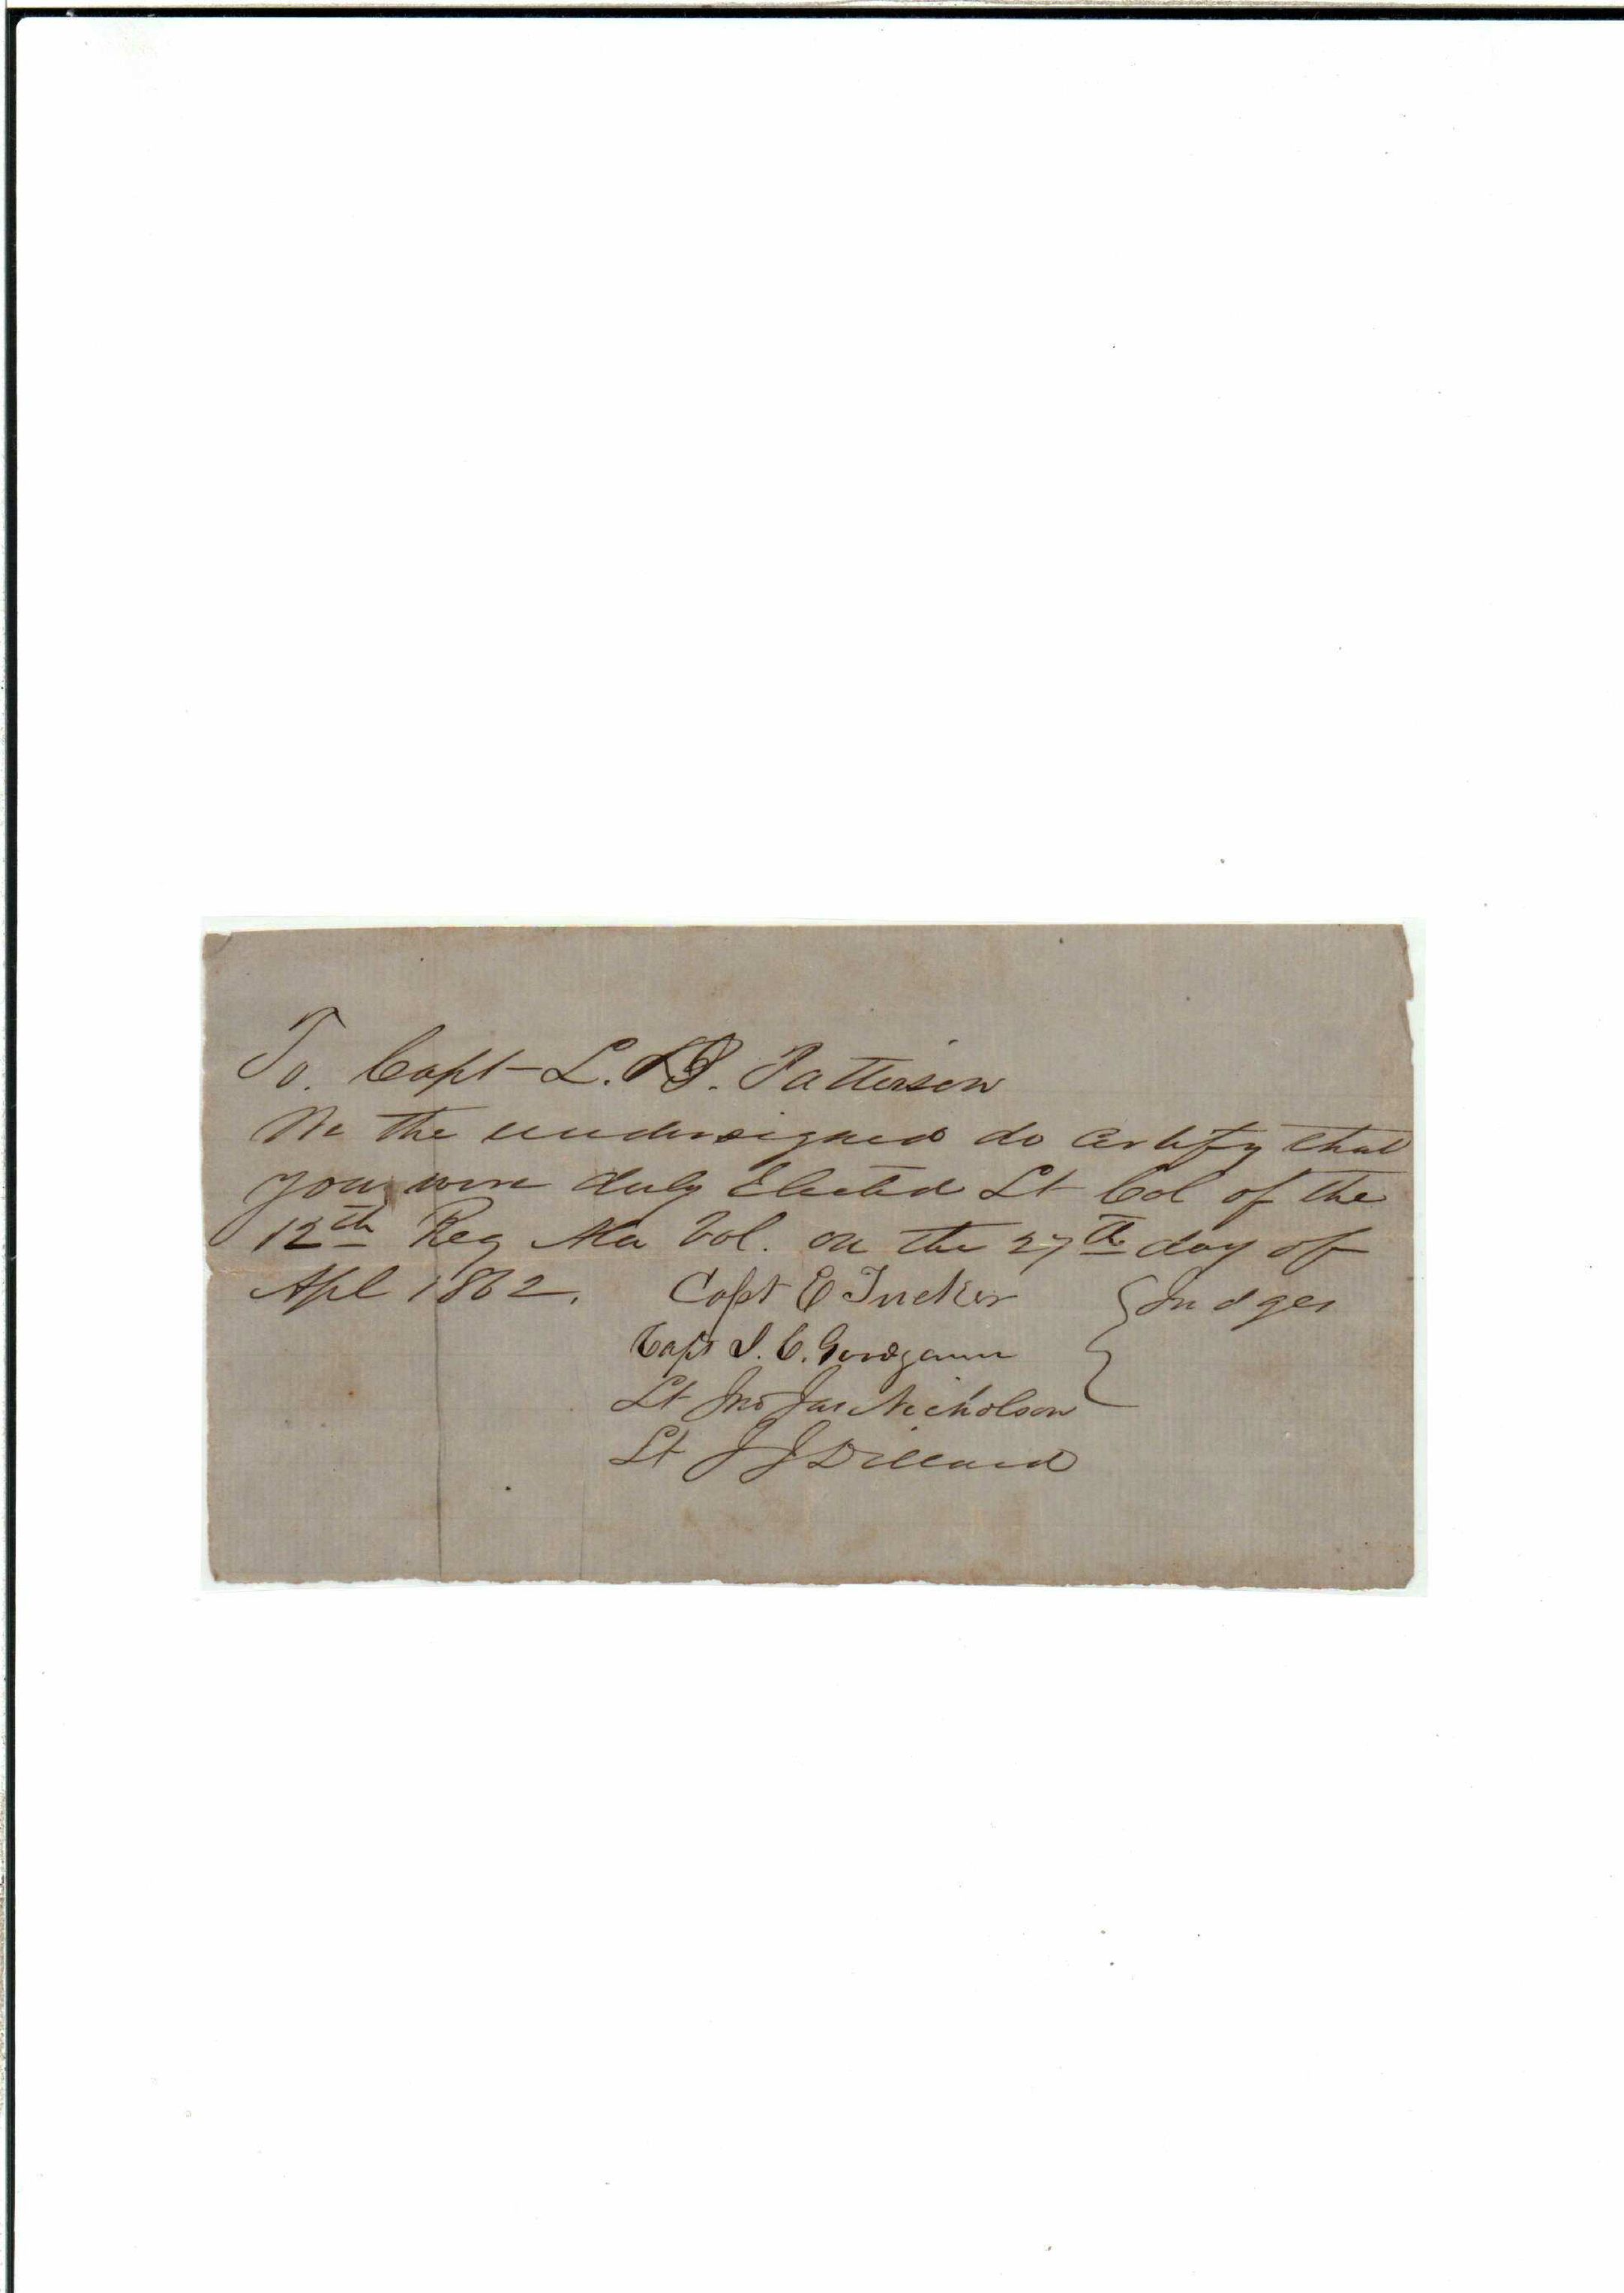 To. Capt L. B. Patterson
We the undersigned do certify that
you were duly Elected Lt Col of the
12th Reg Ala Vol. on the 27th day of
Apl 1862. Capt E Tucker Judges
Capt J. C. Goodgame
Lt Jno Jas Nicholson
Lt J J Dillard